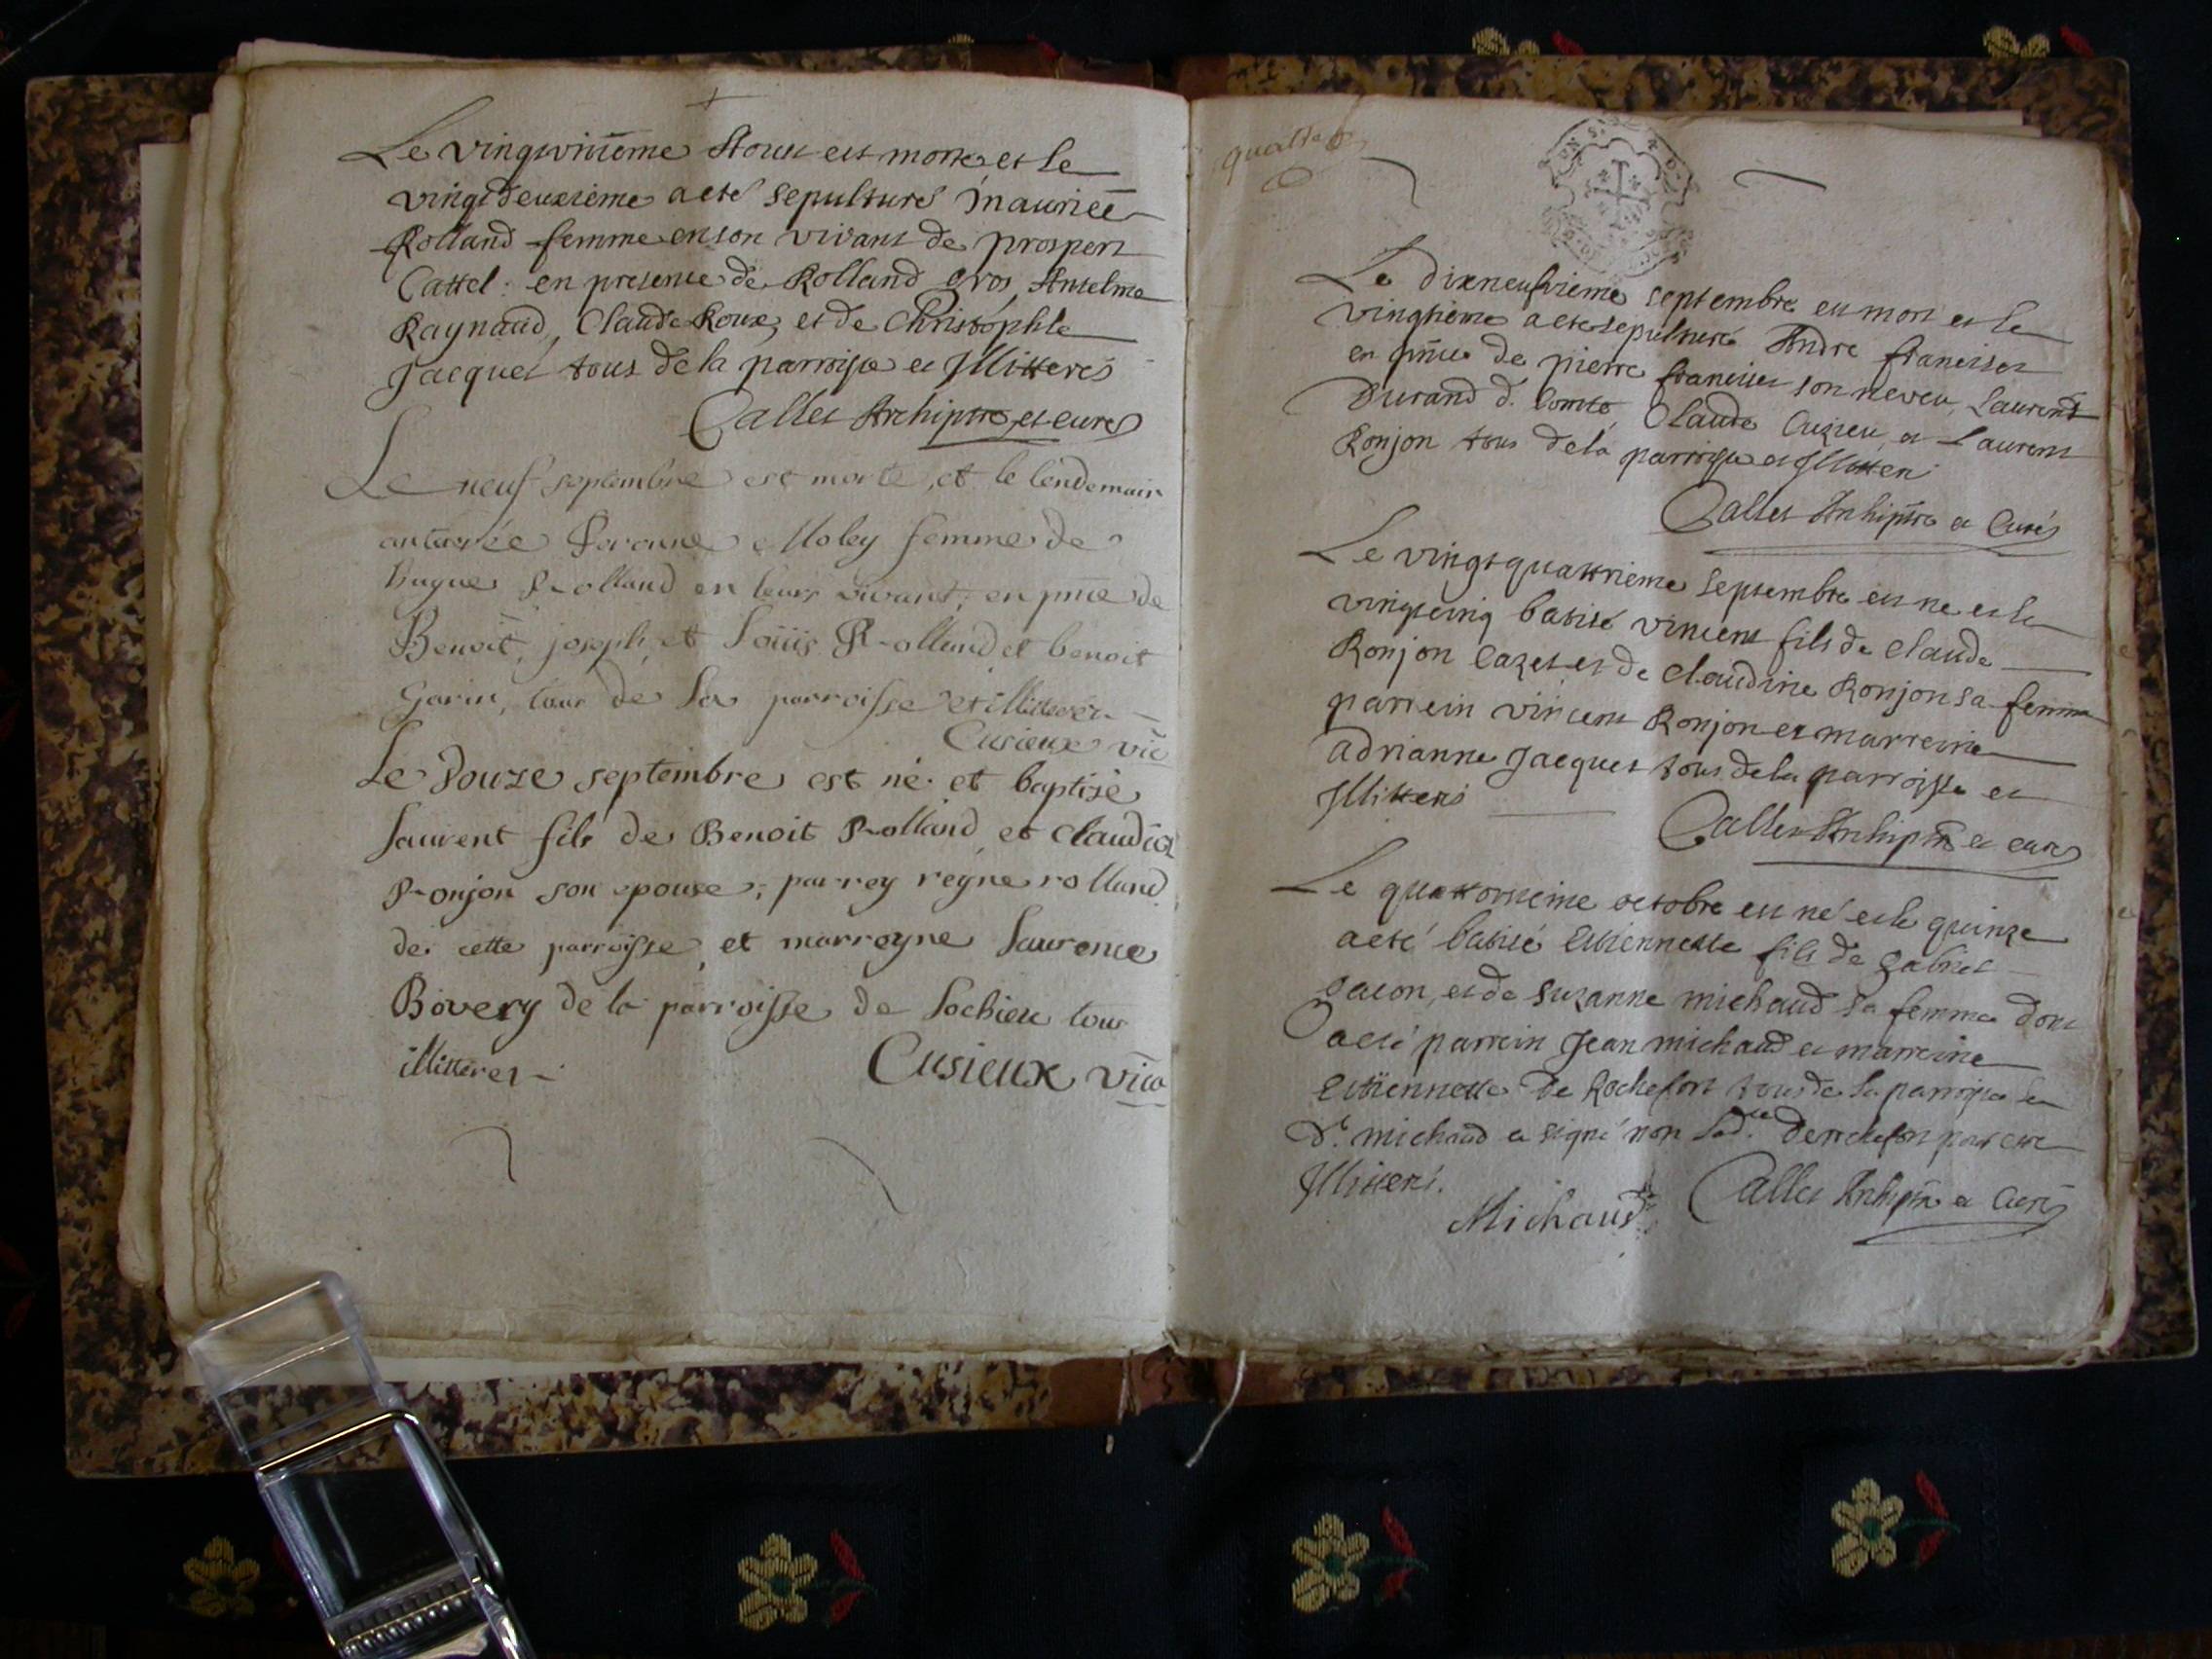 Le vingtviiieme Aoust est morte et le
vingtdeuxieme a eté sepulturé Mauricée
Rolland femme en son vivant de prospert
Cattel: en presence de Rolland gros, Antelme
Raynaud, Claude Roux, et de Christophle
Jacques tous de la parroisse et Illitterés
Callet Archiptre et curé
Le neuf septembre est morte, et le lendemain
anterrée Peronne Moley femme de
Hugues Rolland en leurs vivant, en pnce de
Benoit, joseph, et Loüis Rolland et benoit
Garin, tous de la parroisse et illitterez
Cusieux vic
Le Douze septembre est né et baptisé
Laurent fils de Benoit Rolland et Claudine
Ronjon son epouse; parrey regne rolland
de cette parroisse, et marreyne Laurence
Bovery de la parroisse de Lochieu tous
illitteres
Cusieux vico
quatre
Le dixneufvieme septembre est mort et le
vingtieme a eté sepulturé Andre francisset
en pnce de pierre francisset son neveu, Laurent
Durand d. Comte, Claude Cuzieu et Laurent
Ronjon tous de la parroisse et Illitteré
Callet Archiptre et Curé
Le vingtquattrieme septembre est ne et le
vingtcinq batisé vincent fils de Claude
Ronjon Cazet et de Claudine Ronjon sa femme
parrein vincent Ronjon et marreine
adrianne Jacquet tous de la parroisse et
Illitterés
Callet Archiptre et curé
Le quattorzieme octobre est né et le quinze
a eté batisé Estiennette fils de gabriel
Jacon, et de Suzanne michaud sa femme dont
a eté parrein Jean michaud et marreine
Estiennette de Rochefort tous de la parroisse le
Dt. michaud a signé non lad.te derochefort pour estre
Illitteré.
Michaud
Callet Archiptre et Curé